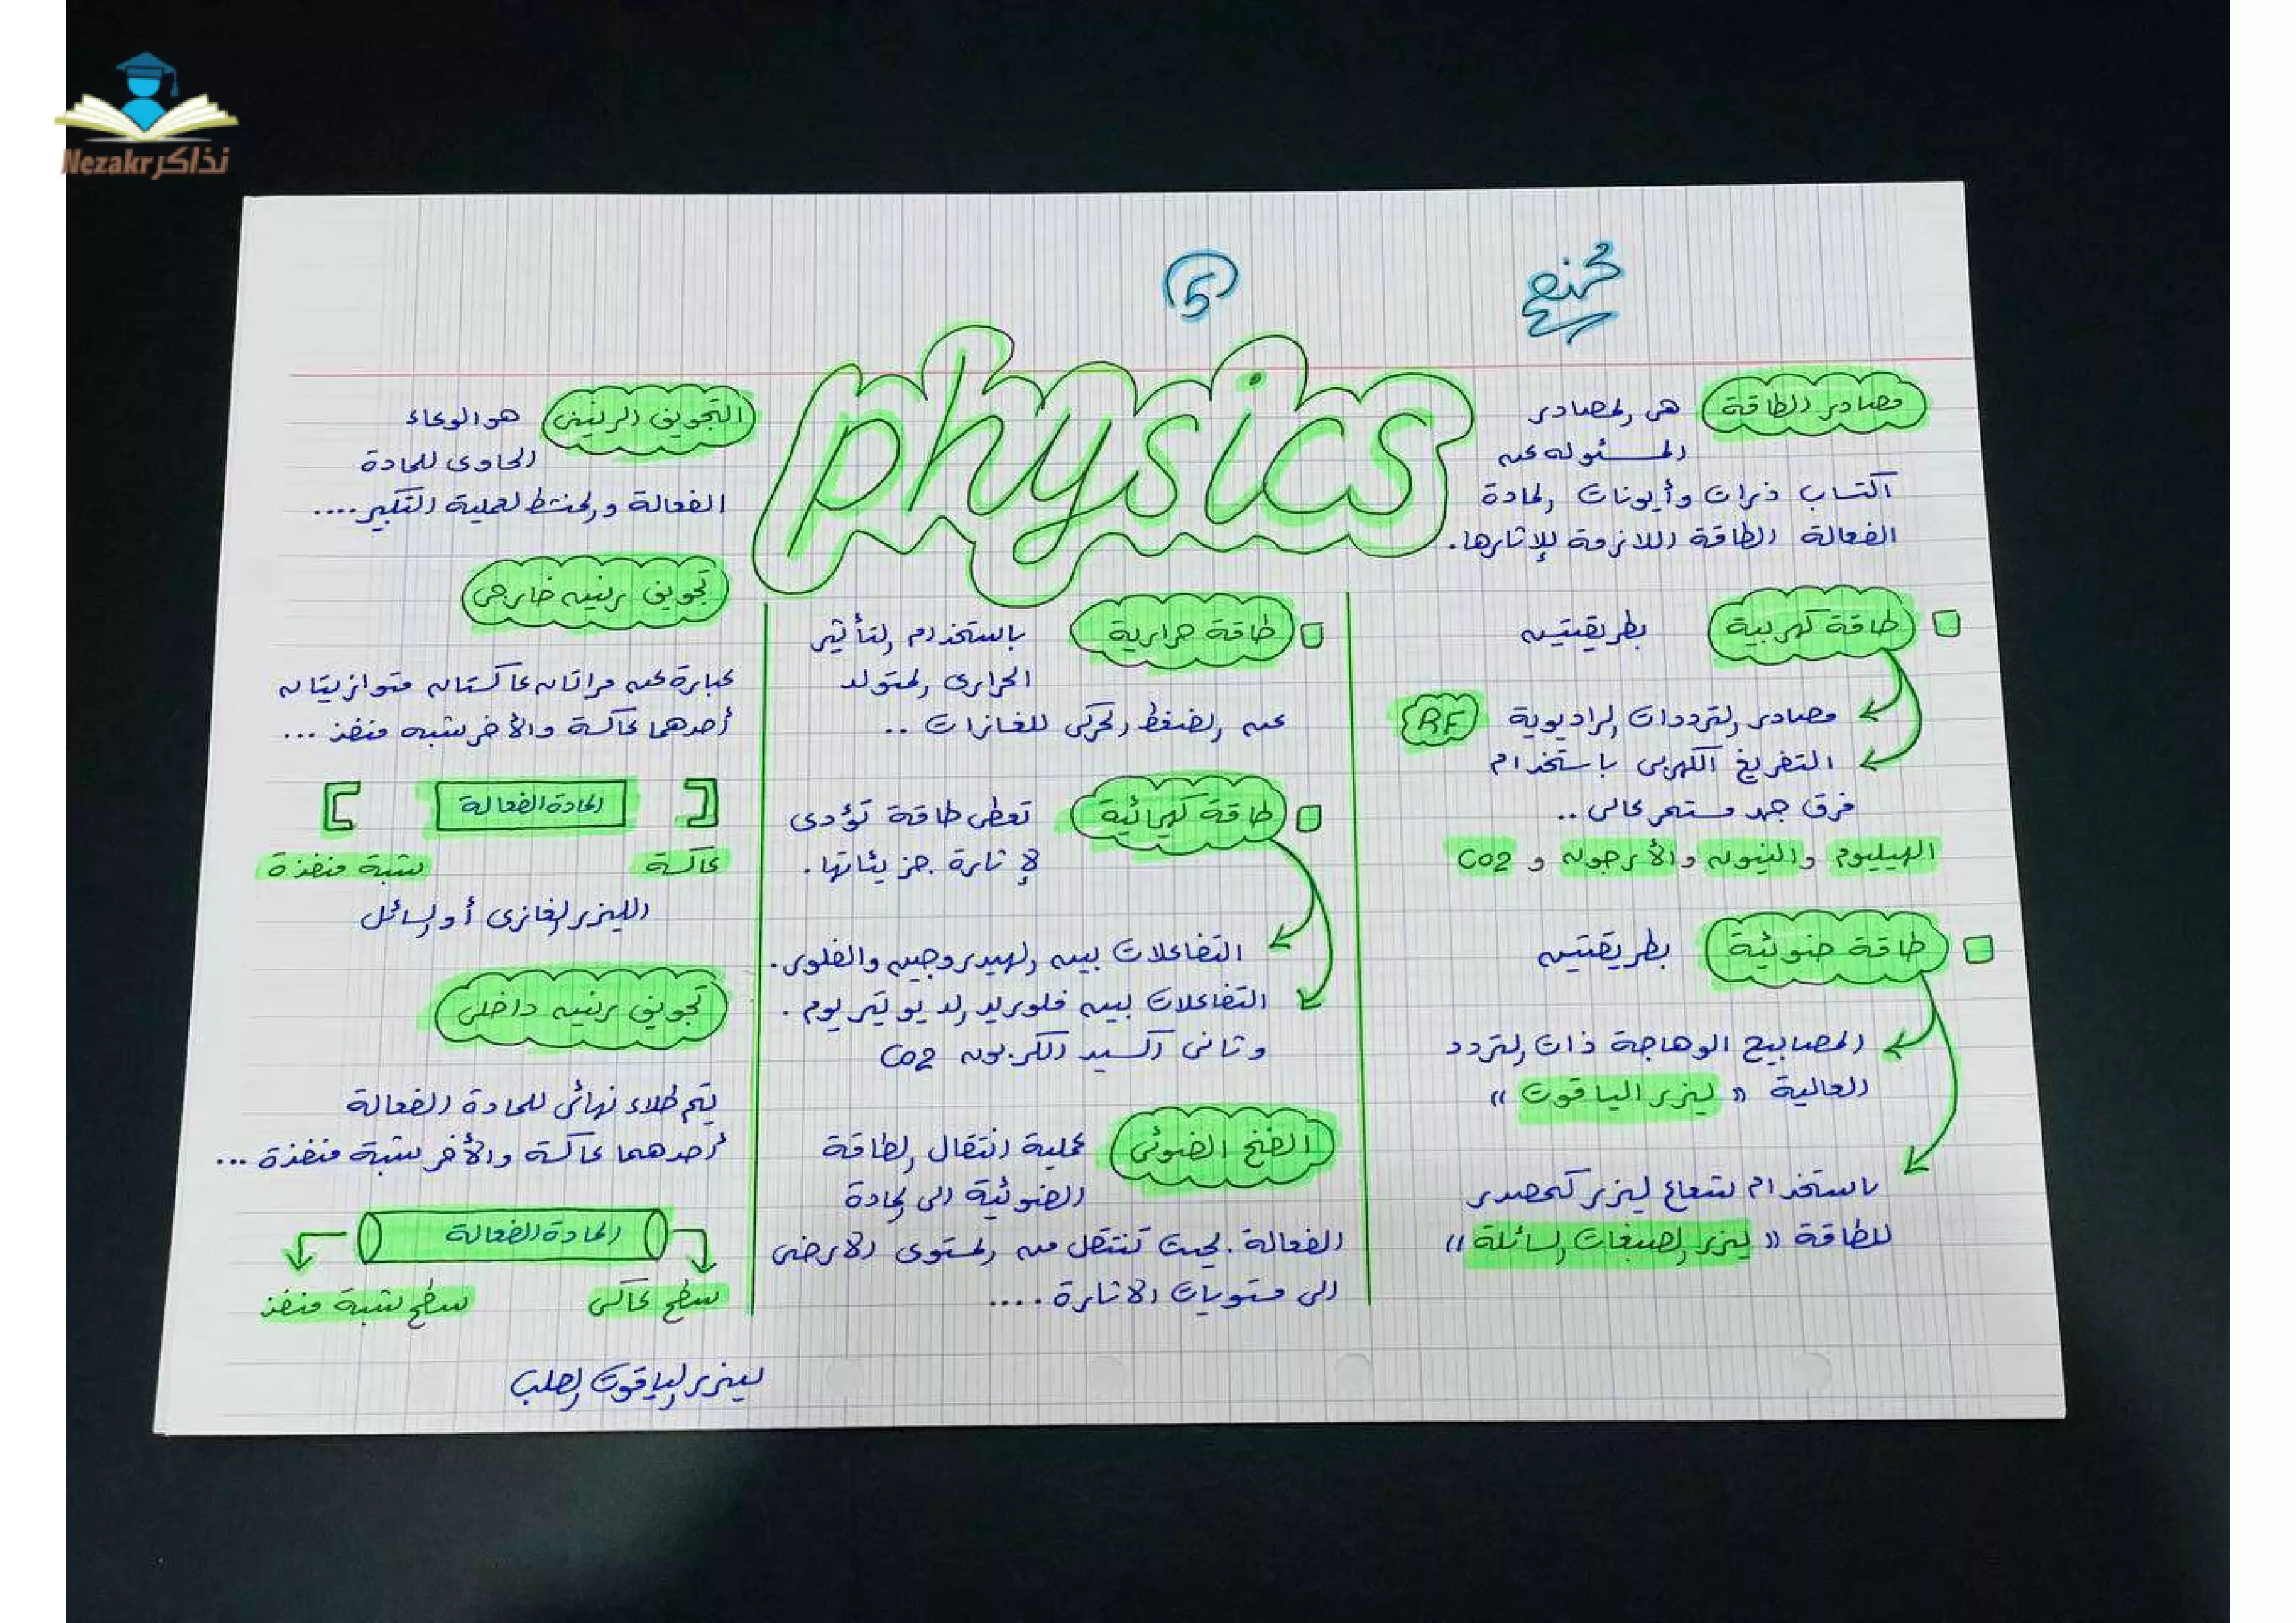 نذاكر Nezakr
5
physics
مصادر الطاقة
هى المصادر
المسئوله عن
اكتساب ذرات وأيونات المادة
الفعالة الطاقة اللازمة للإثارها.
طاقة كهربية
بطريقتين
مصادر الترددات الراديوية RF
التفريغ الكهربى باستخدام
فرق جهد مستمر عالى ..
الهيليوم والنيون والأرجون و CO2
طاقة ضوئية
بطريقتين
المصابيح الوهاجة ذات التردد
العالية « ليزر الياقوت »
باستخدام شعاع ليزر كمصدر
للطاقة « ليزر الصبغات السائلة »
طاقة حرارية
باستخدام التأثير
الحرارى المتولد
عن الضغط الحركى للغازات ..
طاقة كيميائية
تعطى طاقة تؤدى
لإثارة جزيئاتها.
التفاعلات بين الهيدروجين والفلور.
التفاعلات بين فلوريد الديوتيريوم.
وثانى أكسيد الكربون CO2
الضخ الضوئى
عملية انتقال الطاقة
الضوئية الى المادة
الفعالة. بحيث تنتقل من المستوى الارضى
الى مستويات الاثارة ....
التجويف الرنينى
هو الوعاء
الحاوى للمادة
الفعالة والمنشط لعملية التكبير ....
تجويف رنين خارجى
عبارة عن مراتان عاكستان متوازيتان
أحدهما عاكسة والأخر شبه منفذ ...
المادة الفعالة
عاكسة
شبة منفذة
الليزر الغازى أو السائل
تجويف رنين داخلى
يتم طلاء نهائى للمادة الفعالة
أحدهما عاكسة والأخر شبة منفذة ...
المادة الفعالة
سطح عاكس
سطح شبة منفذ
ليزر الياقوت الصلب